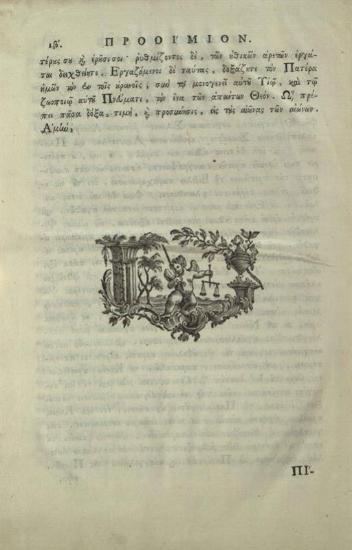 ιβ'. ΠΡΟΟΙ´ΜΙΟΝ.
τέρας σου ᾖ ἐρείσεσι· ῥυθμίζοντες δὲ, τῶν ἠθικῶν ἀρετῶν ἐργά-
ται δειχθῆτε. Ἐργαζόμενοι δὲ ταύτας, δοξάζητε τὸν Πατέρα
ἡμῶν τὸν ἐν τοῖς οὐρανοῖς, σὺν τῷ μονογενεῖ αὐτοῦ Υἱῷ, καὶ τῷ
ζωοποιῷ αὐτοῦ Πνεύματι, τὸν ἕνα τῶν ἁπάντων Θεόν. Ὧ, πρέ-
πει πᾶσα δόξα, τιμὴ, ἡ προσκύνησις, εἰς τοὺς αἰῶνας τῶν αἰώνων.
Ἀμὴν.
ΠΙ´-